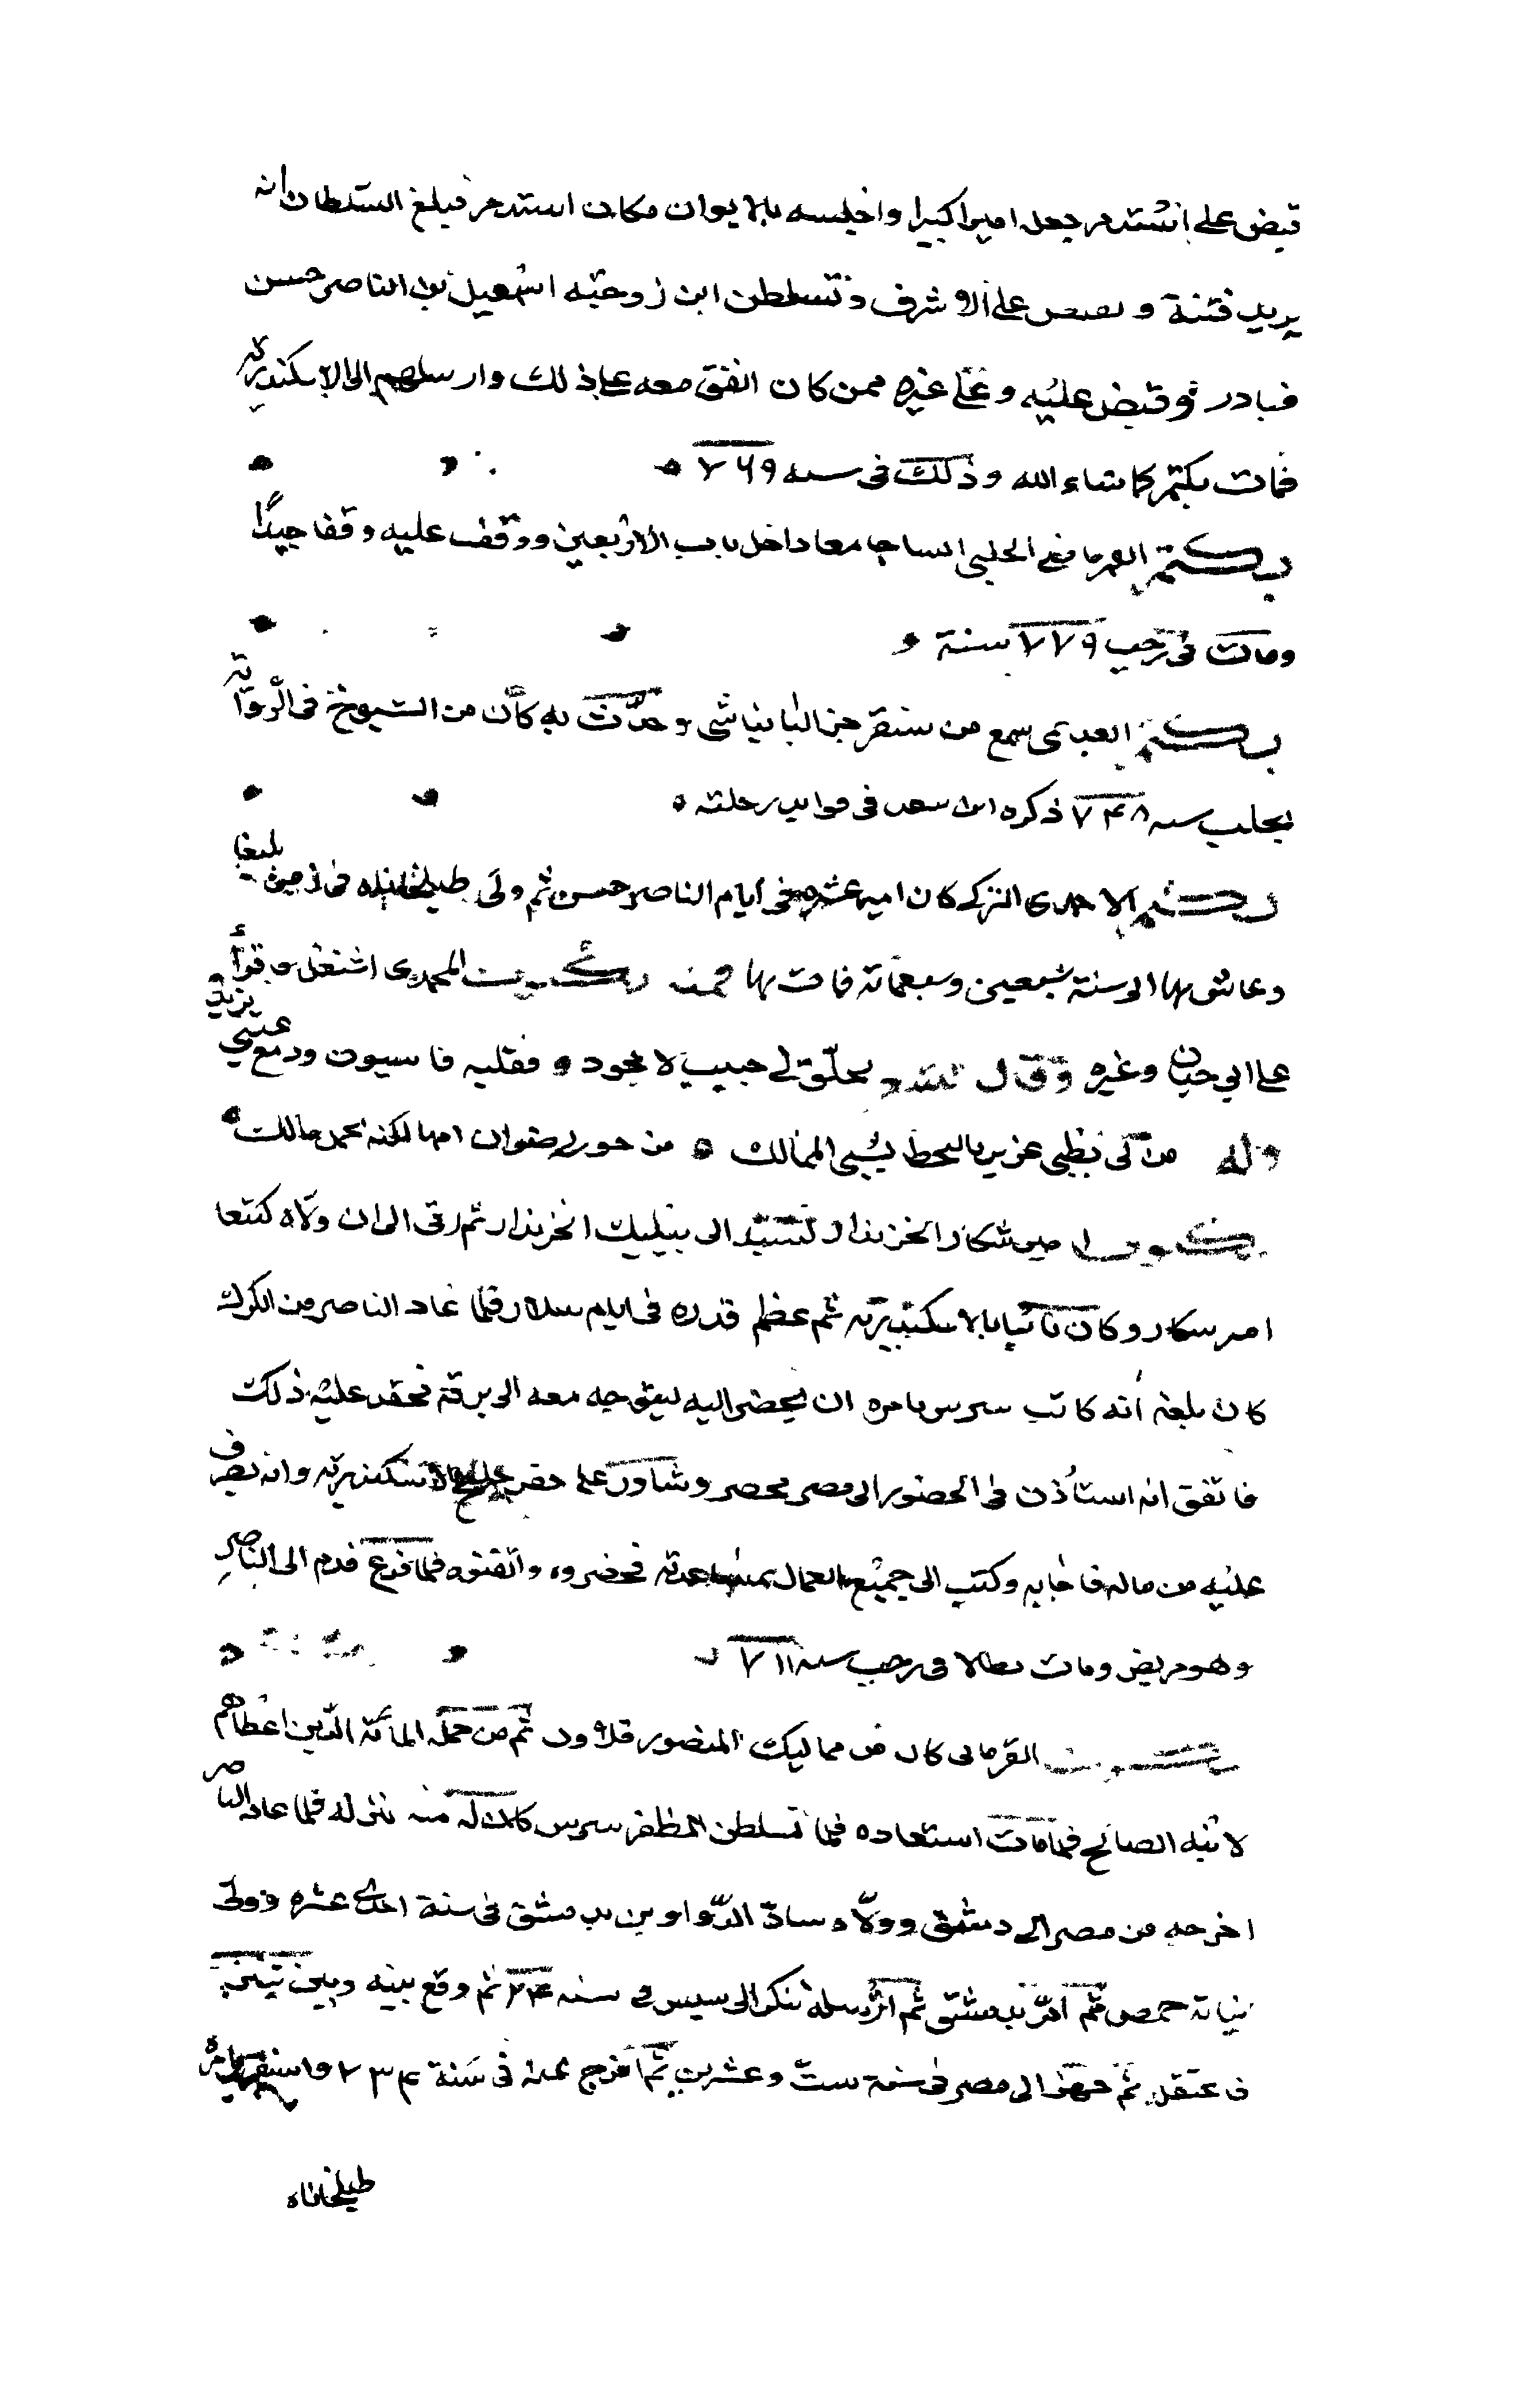 قبض على استدمر جعله اميرا كبيرا واجلسه بالايوان مكان استدمر فبلغ السلطان انه
يريد فتنة و على الاشرف وتسلطن ابن زوجته اسمعيل بن الناصر حسن
فبادر وقبض عليه وعلى غيره ممن كان اتفق معه على ذلك وارسلهم الى الاسكندرية
فمات بكتمر كما شاء الله وذلك في سنه ٧٦٩
بكتمر الحلبي جامعا داخل باب الاربعين ووقف عليه وقفا جيدا
ومات في رجب ٧٧٩ سنة
بكتمر سمع من سنقر وحدث به كان من الشيوخ في الرواية
بحلب سنه ٧٤٨ ذكره ابن سعد في فوايد رحلته
الاحمدى التركى كان امير عشره في ايام الناصر حسن ثم ولى طبلخاناه في زمن يلبغا
وعاش بها الى سنة سبعين وسبعمائة فمات بها المحمدى اشتغل وقرأ
على ابي حيان وغيره وقال لى حبيب لا يجود فقلبه ودمع عيني يزيد
وله من لى بظبي عزيز باللحظ يسبي الممالك من حور رضوان
الخزندار الى بيليك الخزندار ثم رقى الى ان ولاه كتبغا
وكان نائبا بالاسكندرية ثم عظم قدره في ايام سلار فلما عاد الناصر من الكرك
كان بلغه أنه كاتب بيبرس يامره ان يحضر اليه ليتوجه معه الى برقة فحقد عليه ذلك
فاتفق انه استأذن في الحضور الى مصر فحضر وشاور على حفر خليج الاسكندرية وانه يصرف
عليه من ماله فاجابه وكتب الى جميع العمال بمساعدته فحضروه واتقنوه فلما فرغ قدم الى الناصر
وهو مريض ومات بطالا في رجب سنه ٧١١
القرماني كان من مماليك المنصور قلاوون ثم من جملة المائة الذين اعطاهم
لابنه الصالح فلما مات استعاده فلما تسلطن المظفر بيبرس كانت له منه منزله فلما عاد الناصر
اخرجه من مصر الى دمشق وولاه الدواوين بدمشق في سنة احدى عشره وولى
نيابة حمص ثم امر بدمشق ثم ارسله تنكز الى سيس في سنه ٢٤ ثم وقع بينه وبين تنكز
فاعتقل ثم جهز الى مصر في سنة ست وعشرين ثم افرج عنه في سنة
طبلخاناه